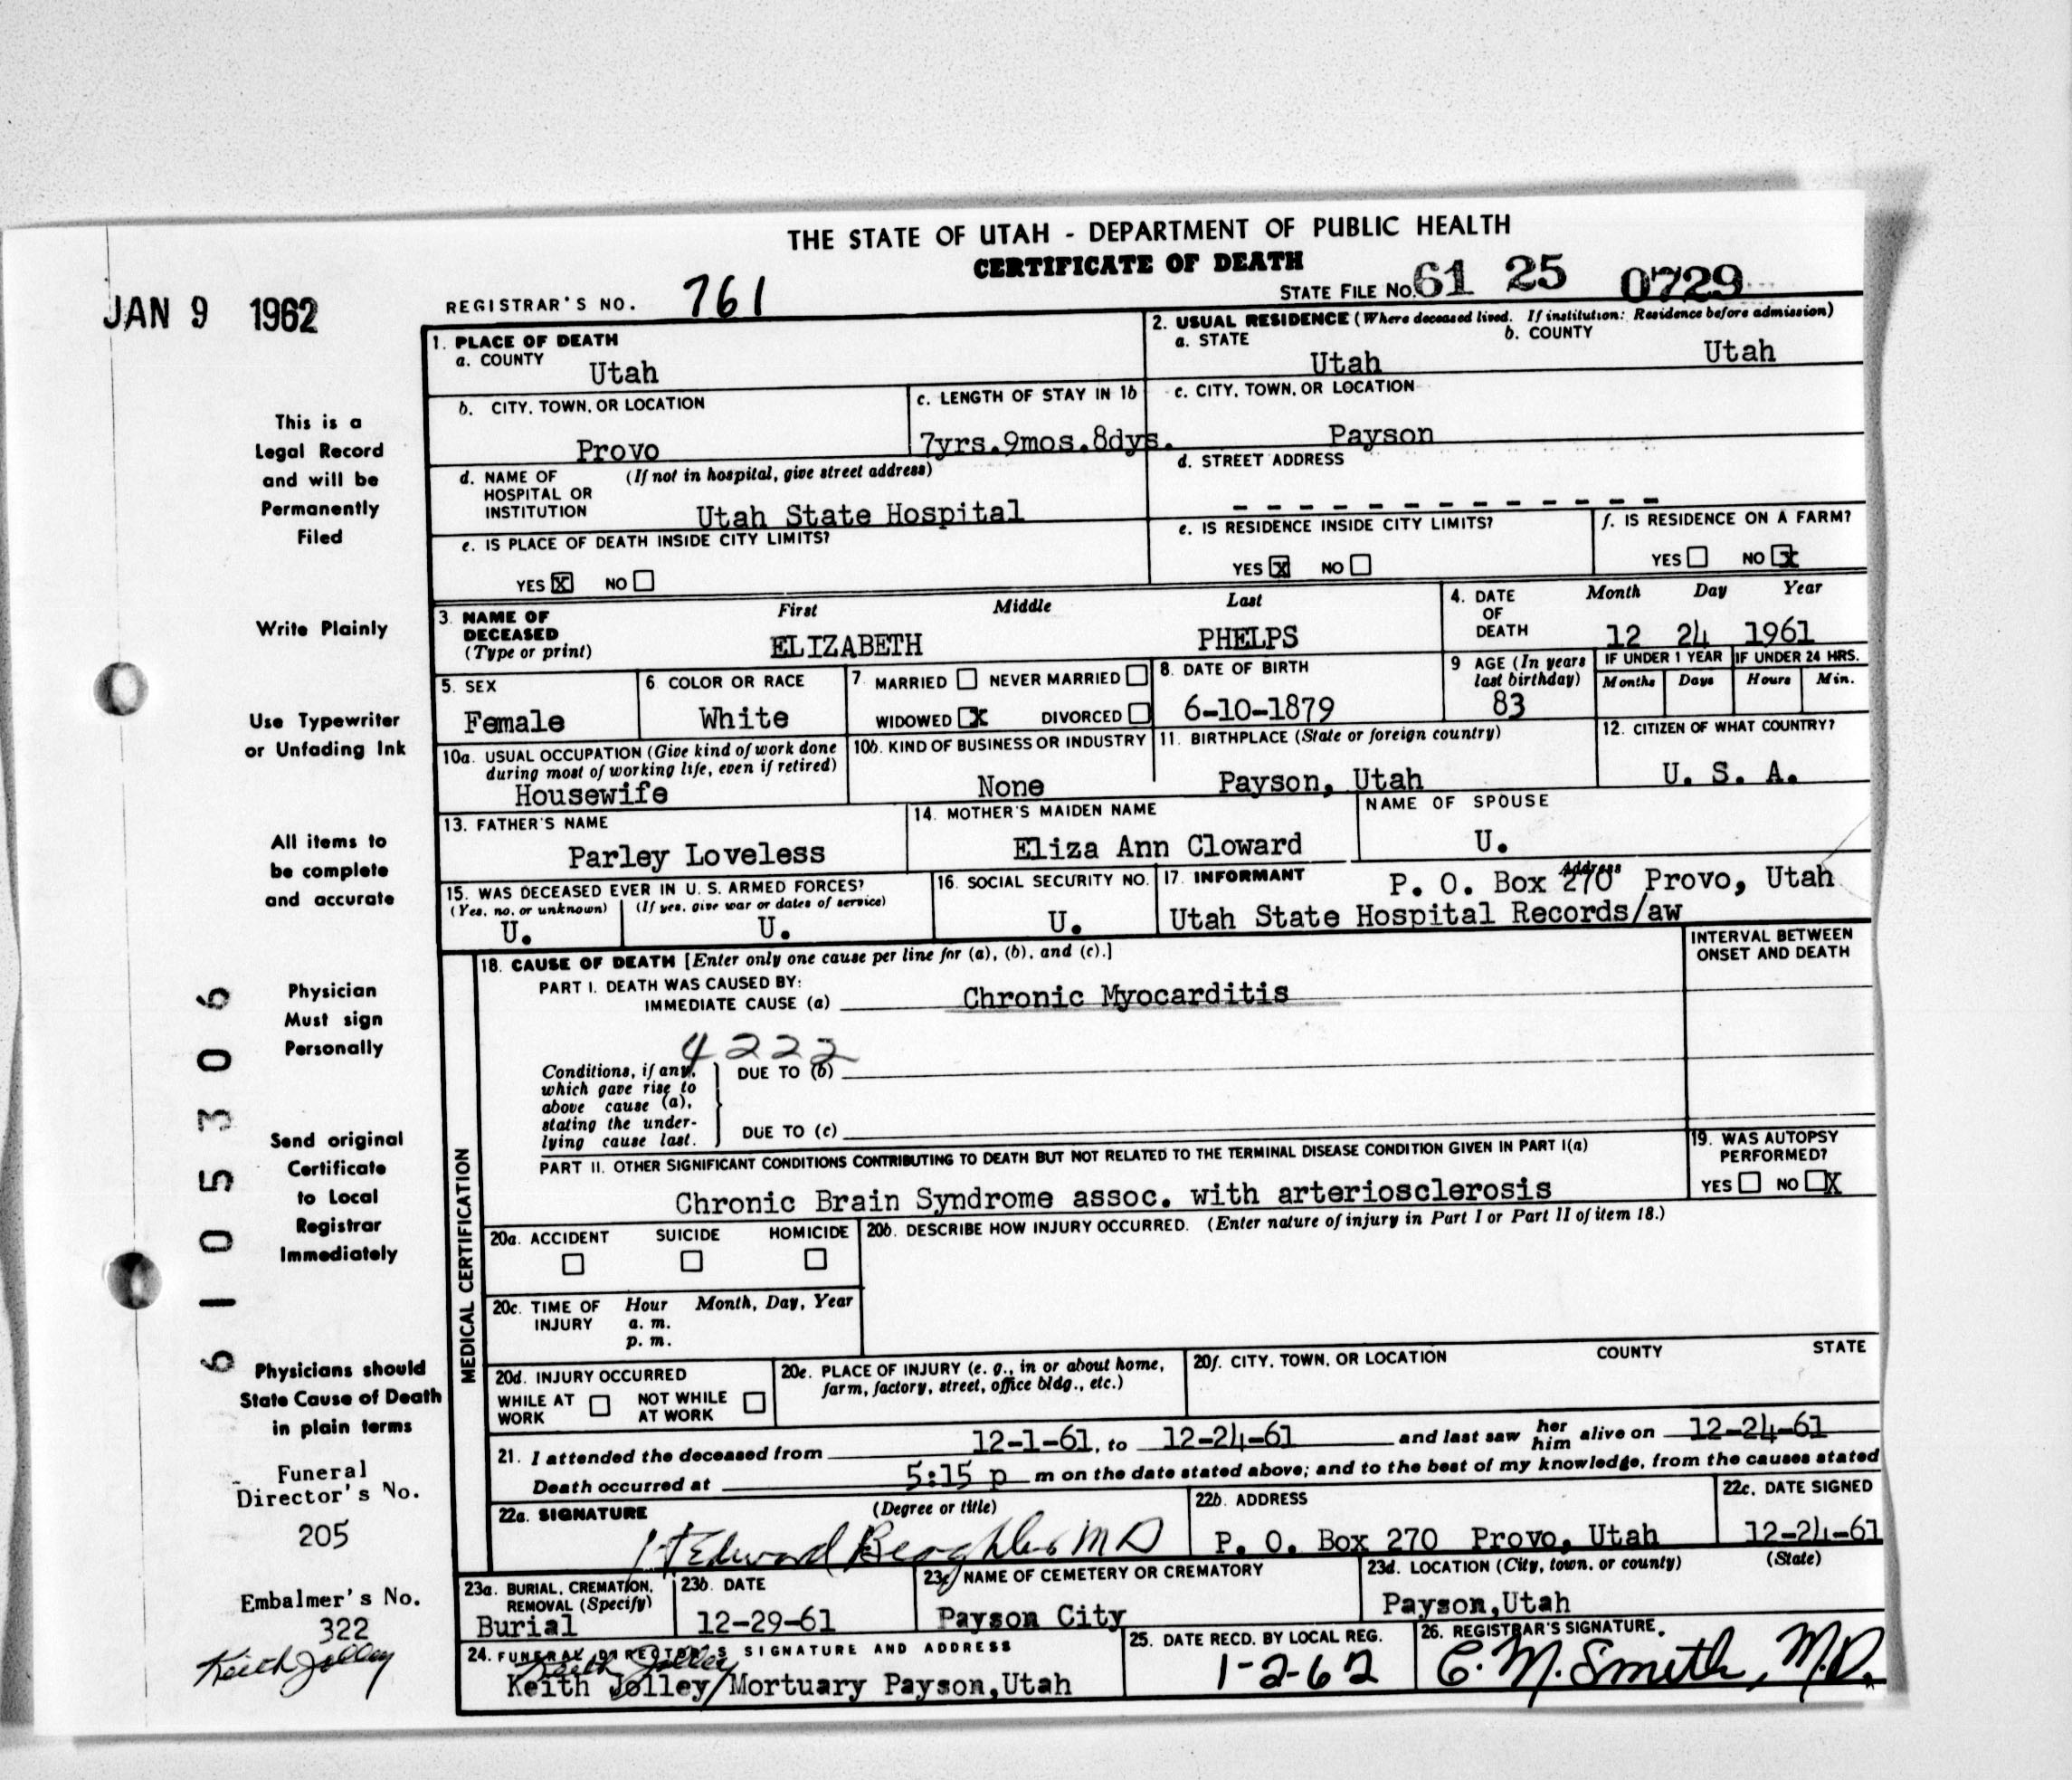 THE STATE OF UTAH - DEPARTMENT OF PUBLIC HEALTH
CERTIFICATE OF DEATH
JAN 9 1962
REGISTRAR'S NO. 761
STATE FILE NO. 61 25 0729
1. PLACE OF DEATH
a. COUNTY
Utah
2. USUAL RESIDENCE (Where deceased lived. If institution: Residence before admission)
a. STATE
Utah
b. COUNTY
Utah
b. CITY, TOWN, OR LOCATION
Provo
c. LENGTH OF STAY IN 1b
7yrs.9mos.8dys.
c. CITY, TOWN, OR LOCATION
Payson
d. NAME OF HOSPITAL OR INSTITUTION
(If not in hospital, give street address)
Utah State Hospital
d. STREET ADDRESS
- - - - - - - - - - - -
e. IS PLACE OF DEATH INSIDE CITY LIMITS?
YES X NO
e. IS RESIDENCE INSIDE CITY LIMITS?
YES X NO
f. IS RESIDENCE ON A FARM?
YES NO X
3. NAME OF DECEASED
(Type or print)
First Middle Last
ELIZABETH PHELPS
4. DATE OF DEATH
Month Day Year
12 24 1961
5. SEX
Female
6. COLOR OR RACE
White
7. MARRIED NEVER MARRIED
WIDOWED X DIVORCED
8. DATE OF BIRTH
6-10-1879
9 AGE (In years last birthday)
83
IF UNDER 1 YEAR
Months Days
IF UNDER 24 HRS.
Hours Min.
10a. USUAL OCCUPATION (Give kind of work done
during most of working life, even if retired)
Housewife
10b. KIND OF BUSINESS OR INDUSTRY
None
11. BIRTHPLACE (State or foreign country)
Payson, Utah
12. CITIZEN OF WHAT COUNTRY?
U. S. A.
13. FATHER'S NAME
Parley Loveless
14. MOTHER'S MAIDEN NAME
Eliza Ann Cloward
NAME OF SPOUSE
U.
15. WAS DECEASED EVER IN U. S. ARMED FORCES?
(Yes, no, or unknown) (If yes, give war or dates of service)
U. U.
16. SOCIAL SECURITY NO.
U.
17. INFORMANT
Address
P. O. Box 270 Provo, Utah
Utah State Hospital Records/aw
MEDICAL CERTIFICATION
18. CAUSE OF DEATH [Enter only one cause per line for (a), (b), and (c).]
INTERVAL BETWEEN
ONSET AND DEATH
PART I. DEATH WAS CAUSED BY:
IMMEDIATE CAUSE (a) Chronic Myocarditis
4222
Conditions, if any,
which gave rise to
above cause (a),
stating the under-
lying cause last.
DUE TO (b)
DUE TO (c)
PART II. OTHER SIGNIFICANT CONDITIONS CONTRIBUTING TO DEATH BUT NOT RELATED TO THE TERMINAL DISEASE CONDITION GIVEN IN PART I(a)
Chronic Brain Syndrome assoc. with arteriosclerosis
19. WAS AUTOPSY
PERFORMED?
YES NO X
20a. ACCIDENT SUICIDE HOMICIDE
20b. DESCRIBE HOW INJURY OCCURRED. (Enter nature of injury in Part I or Part II of item 18.)
20c. TIME OF INJURY
Hour Month, Day, Year
a. m.
p. m.
20d. INJURY OCCURRED
WHILE AT WORK NOT WHILE AT WORK
20e. PLACE OF INJURY (e. g., in or about home,
farm, factory, street, office bldg., etc.)
20f. CITY, TOWN, OR LOCATION COUNTY STATE
21. I attended the deceased from 12-1-61, to 12-24-61 and last saw her him alive on 12-24-61
Death occurred at 5:15 p m on the date stated above; and to the best of my knowledge, from the causes stated
22a. SIGNATURE (Degree or title)
Edward MD
22b. ADDRESS
P. O. Box 270 Provo, Utah
22c. DATE SIGNED
12-24-61
23a. BURIAL, CREMATION,
REMOVAL (Specify)
Burial
23b. DATE
12-29-61
23c. NAME OF CEMETERY OR CREMATORY
Payson City
23d. LOCATION (City, town, or county) (State)
Payson,Utah
24. FUNERAL DIRECTOR'S SIGNATURE AND ADDRESS
Keith Jolley
Keith Jolley/Mortuary Payson,Utah
25. DATE RECD. BY LOCAL REG.
1-2-62
26. REGISTRAR'S SIGNATURE.
C. M. Smith, M.D.
This is a
Legal Record
and will be
Permanently
Filed
Write Plainly
Use Typewriter
or Unfading Ink
All items to
be complete
and accurate
Physician
Must sign
Personally
Send original
Certificate
to Local
Registrar
Immediately
Physicians should
State Cause of Death
in plain terms
Funeral
Director's No.
205
Embalmer's No.
322
Keith Jolley
6105306